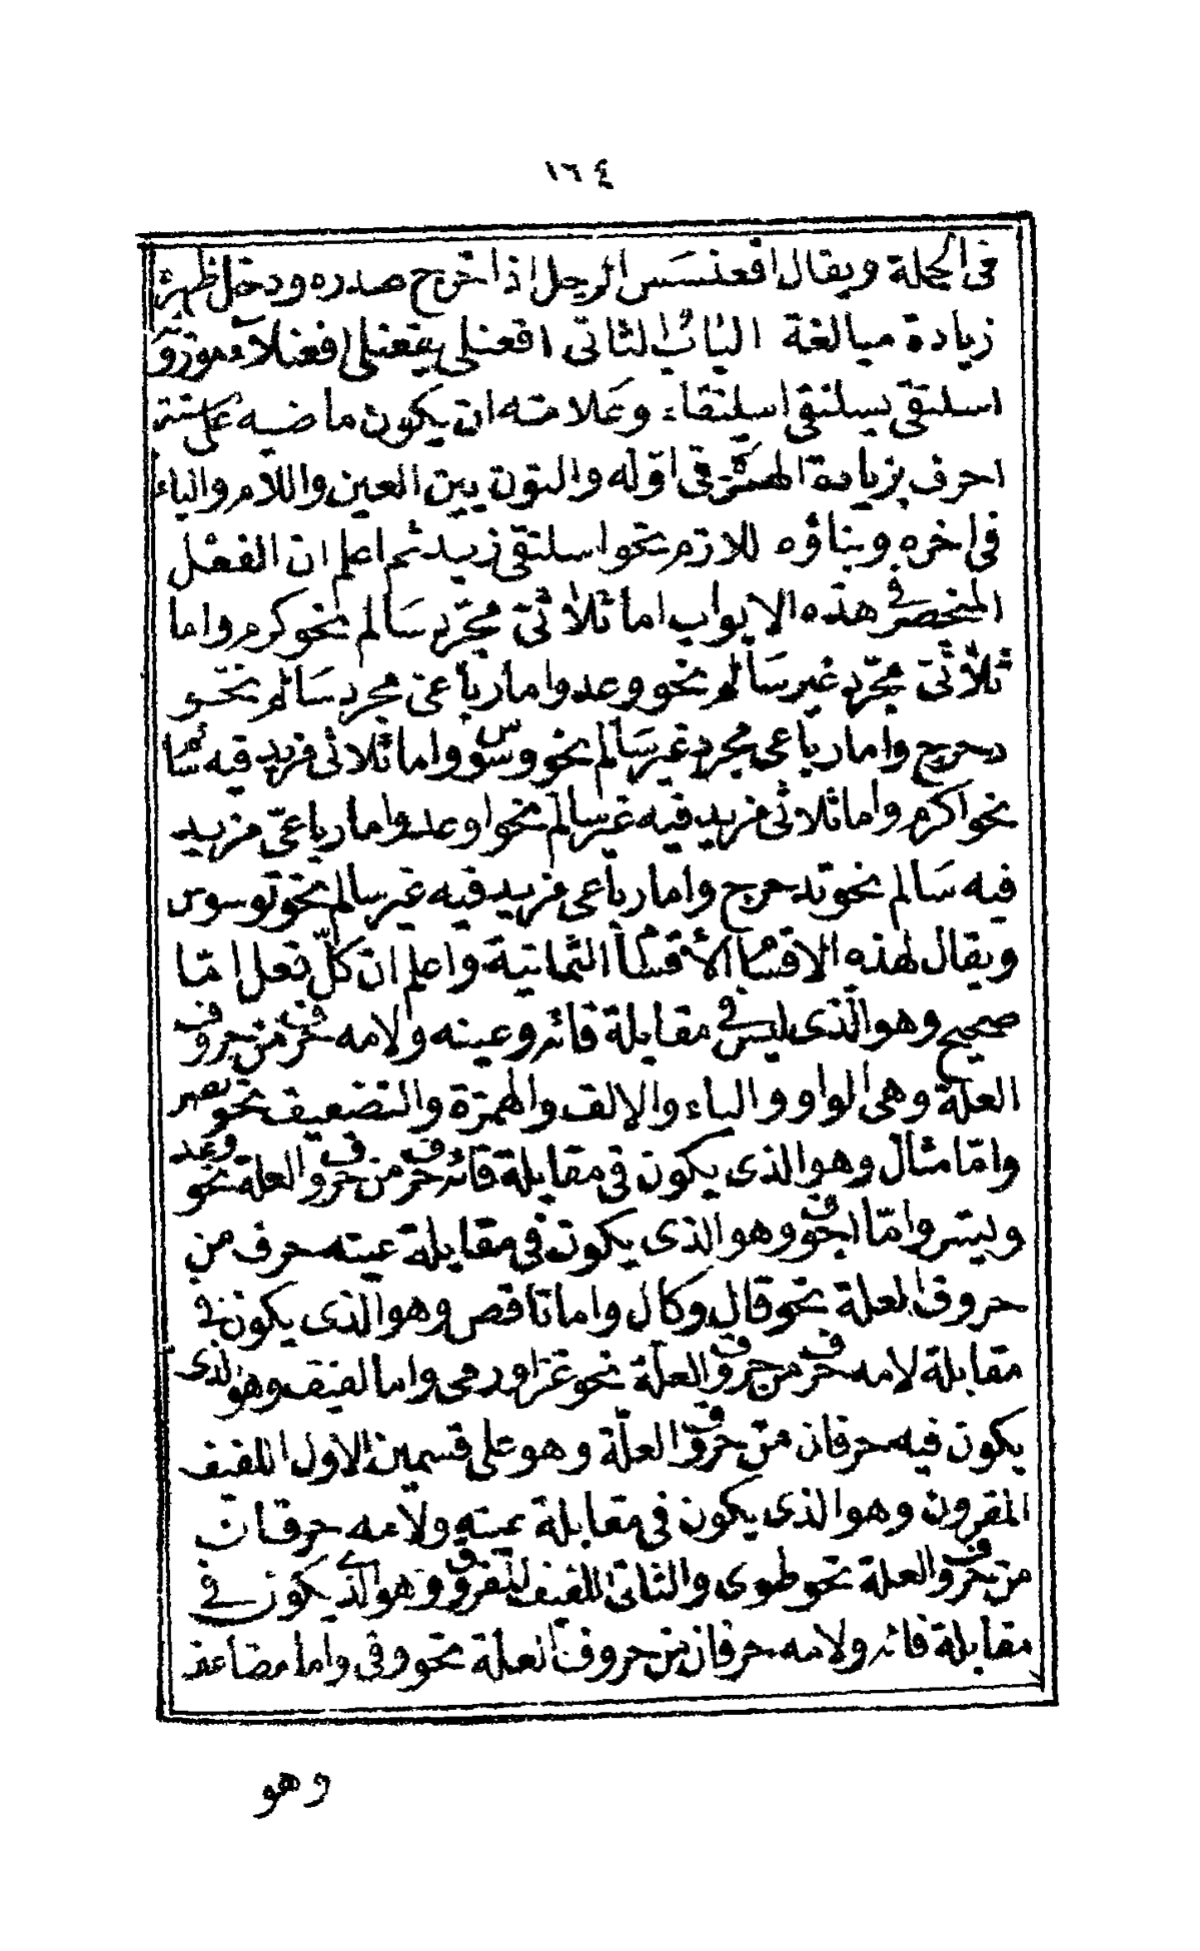 ١٦٤
فى الجملة ويقال اقعنسس الرجل اذا خرج صدره ودخل ظهره
زيادة مبالغة الباب الثانى افعنلى يفعنلى افعنلاء موزونه
اسلنقى يسلنقى اسلنقاء وعلامته ان يكون ماضيه على ستة
احرف بزيادة الهمزة فى اوّله والنون بين العين واللام والياء
فى اخره وبناؤه للازم نحو اسلنقى زيد ثم اعلم ان الفعل
المنحصر فى هذه الابواب اما ثلاثىّ مجرّد سالم نحو كرم واما
ثلاثىّ مجرّد غير سالم نحو وعد واما رباعى مجرد سالم نحو
دحرج واما رباعى مجرد غير سالم نحو وسوس واما ثلاثى مزيد فيه سالم
نحو اكرم واما ثلاثى مزيد فيه غير سالم نحو اوعد واما رباعىّ مزيد
فيه سالم نحو تدحرج واما رباعى مزيد فيه غير سالم نحو توسوس
ويقال لهذه الاقسام الأقسام الثمانية واعلم ان كلّ فعل امّا
صحيح وهو الّذى ليس فى مقابلة فائه وعينه ولامه حرف من حروف
العلّة وهى الواو والياء والالف والهمزة والتضعيف نحو نصر
وامّا مثال وهو الذى يكون فى مقابلة فائه حرف من حروف العلة نحو وعد
ويسر وامّا اجوف وهو الذى يكون فى مقابلة عينه حرف من
حروف العلة نحو قال وكال واما ناقص وهو الذى يكون فى
مقابلة لامه حرف من حروف العلّة نحو غزا ورمى واما لفيف وهو الذى
يكون فيه حرفان من حروف العلّة وهو على قسمين الاول اللفيف
المقرون وهو الذى يكون فى مقابلة عينه ولامه حرفان
من حروف العلة نحو طوى والثانى اللفيف المفروق وهو الذى يكون فى
مقابلة فائه ولامه حرفان من حروف العلة نحو وقى واما مضاعف
وهو